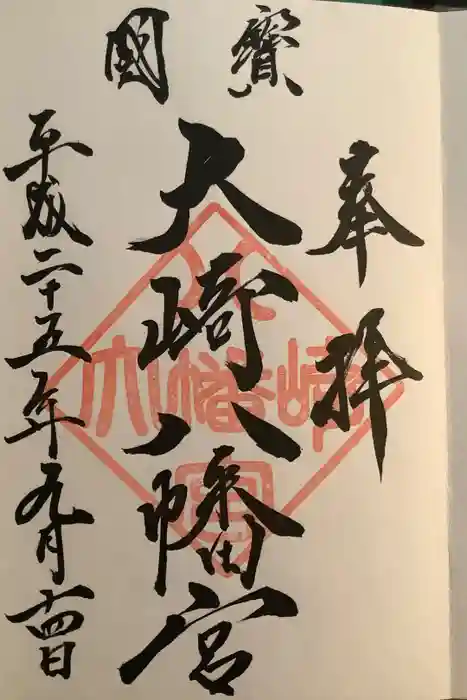 國寳
奉拝
大崎八幡宮
平成二十五年九月十四日
大崎八幡宮